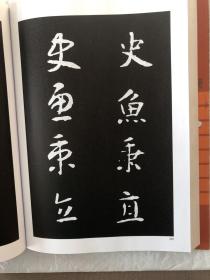 史魚秉直
史魚秉直